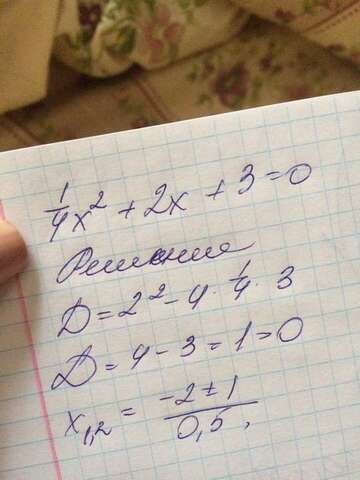 1/4 x² + 2x + 3 = 0
Решение
D = 2² - 4 · 1/4 · 3
D = 4 - 3 = 1 = 0
x₁,₂ = (-2 ± 1)/0,5,